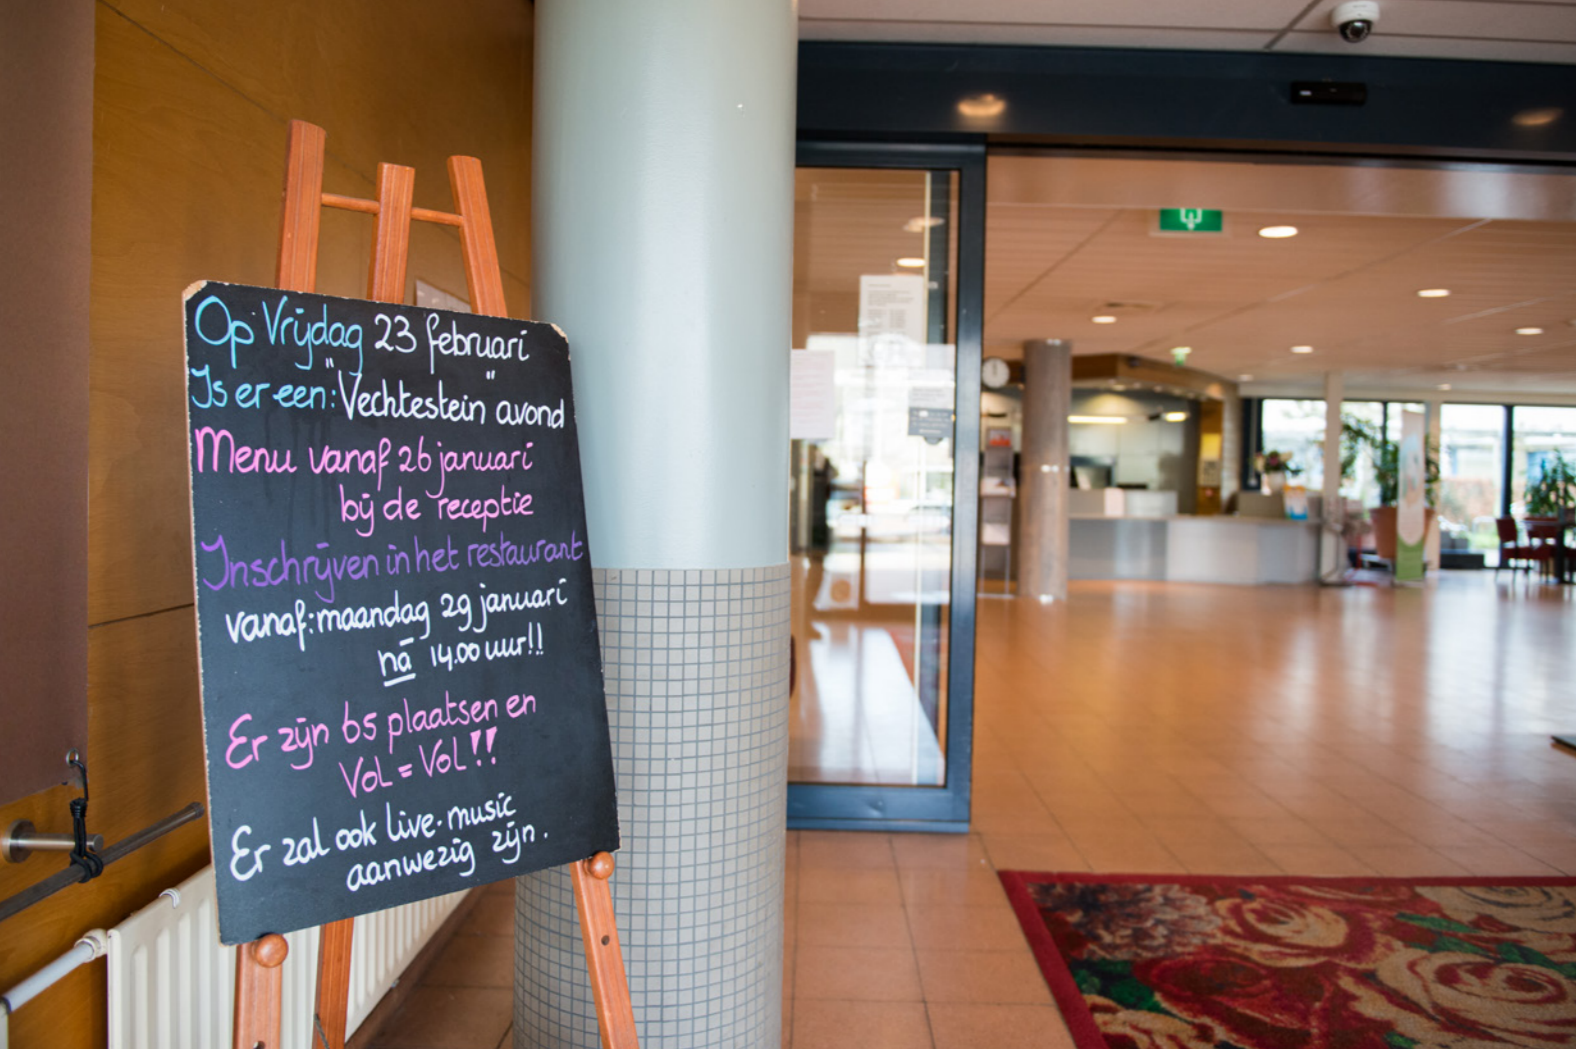 Op Vrijdag 23 februari
Is er een: "Vechtestein" avond
Menu vanaf 26 januari
bij de receptie
Inschrijven in het restaurant
vanaf: maandag 29 januari
ná 14.00 uur!!
Er zijn 65 plaatsen en
Vol = Vol!!
Er zal ook live-music
aanwezig zijn.